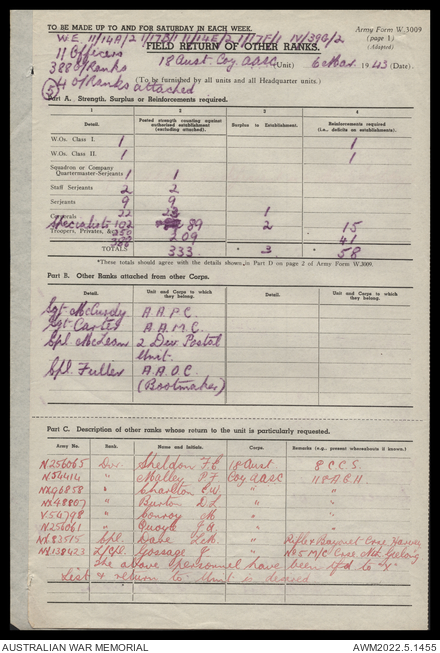 TO BE MADE UP TO AND FOR SATURDAY IN EACH WEEK.
Army Form W.3009
(page 1)
(Adapted)
W.E. 11/14A/2
IV/39G/2
11 Officers
FIELD RETURN OF OTHER RANKS.
388 O/Ranks
18 Aust Coy AASC (Unit) 6 Mar. 1943 (Date).
(To be furnished by all units and all Headquarter units.)
(5) 4 O/Ranks attached
Part A. Strength, Surplus or Reinforcements required.
1 2 3 4
Detail. Posted strength counting against authorised establishment (excluding attached). Surplus to Establishment. Reinforcements required (i.e., deficits on establishment).
W.Os. Class I. 1 1
W.Os. Class II. 1 1
Squadron or Company
Quartermaster-Serjeants 1 1
Staff Serjeants 2 2
Serjeants 9 9
Corporals 22 23 1
Specialists 102 89 2 15
Troopers, Privates, &c. 250 209 41
TOTALS 388 333 * 3 * 58
*These totals should agree with the details shown in Part D on page 2 of Army Form W.3009.
Part B. Other Ranks attached from other Corps.
Detail. Unit and Corps to which they belong. Detail. Unit and Corps to which they belong.
Sgt McCurdy A.A.P.C.
Sgt Carter A.A.M.C.
Cpl McLean 2 Div Postal
Unit.
Cpl. Fuller A.A.O.C.
(Bootmaker)
Part C. Description of other ranks whose return to the unit is particularly requested.
Army No. Rank. Name and Initials. Corps. Remarks (e.g., present whereabouts if known.)
N256065 Dvr. Sheldon F.C 18 Aust 8 C.C.S.
N54414 " Malley P.F Coy AASC 118 A.G.H
NX96858 " Charlton E.W. "
NX48807 " Burton D.L "
V56798 " Conroy M "
N256061 " Quoyle J.A. "
NX83575 Cpl. Dave L.A. " Rifle & Bayonet Crse
NX138423 L/Cpl. Gossage J. " No 5 M/C Crse Nth. Geelong
The above personnel have been t/fd to "X"
List & return to Unit is desired
AUSTRALIAN WAR MEMORIAL AWM2022.5.1455